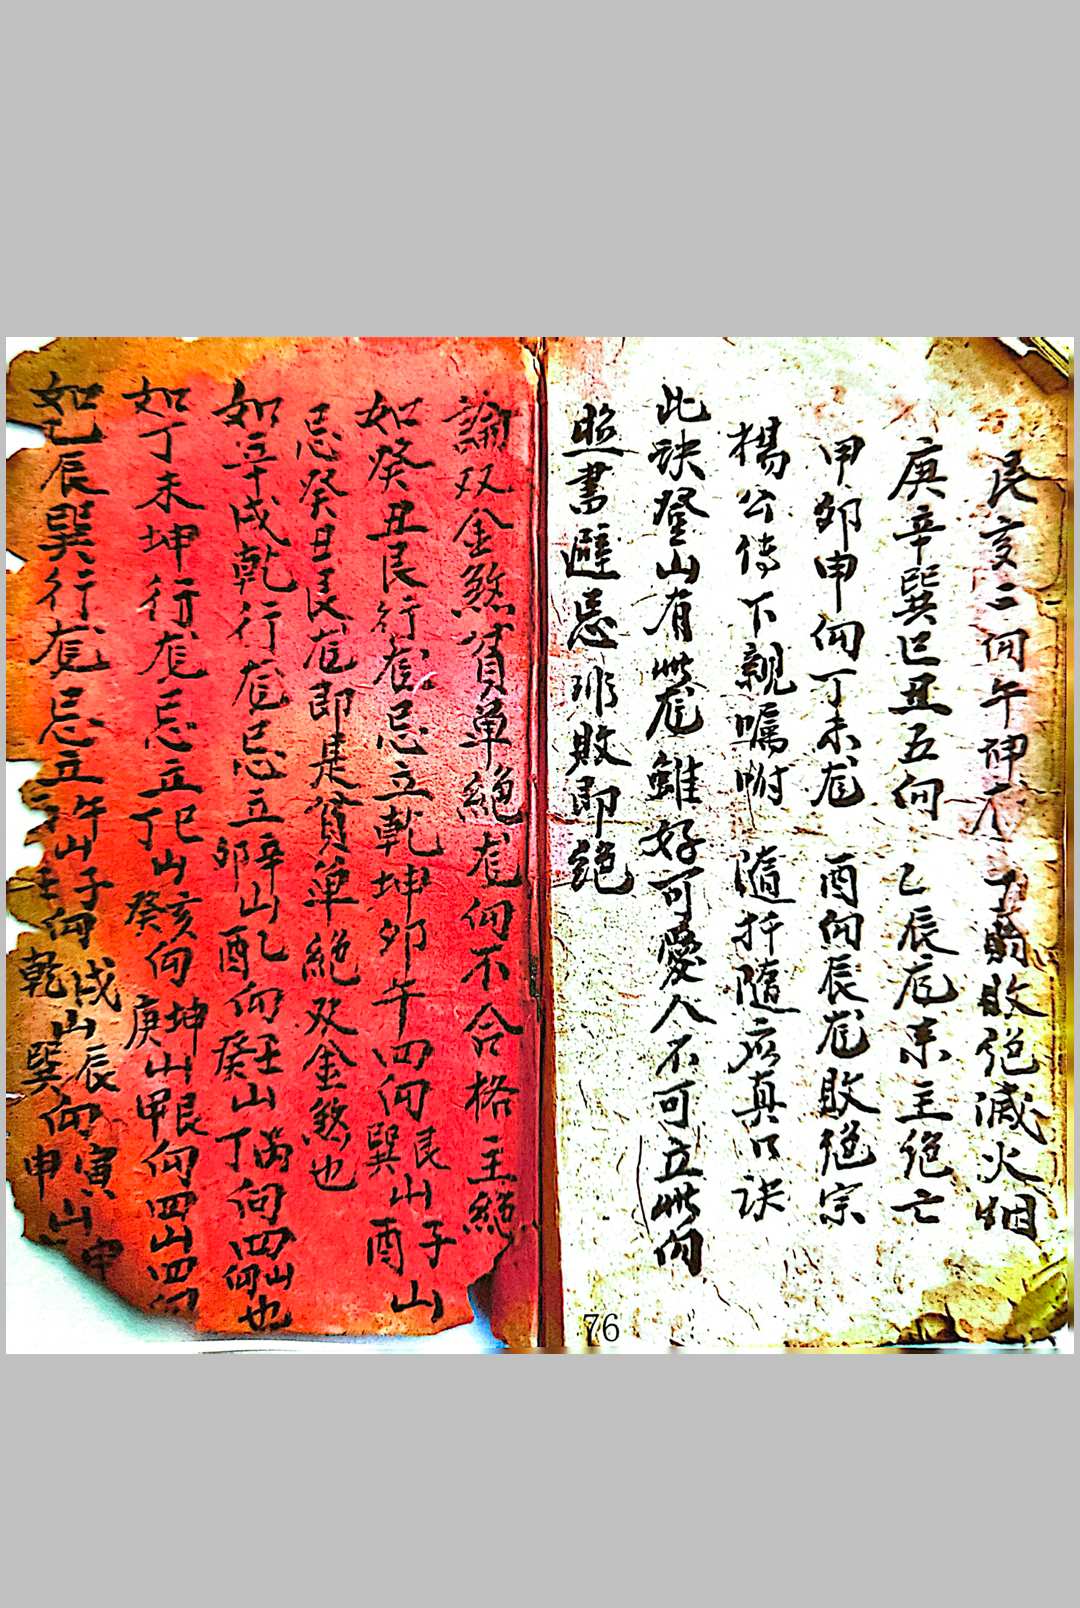 艮亥二向午神尨丁酉敗絕滅火烟
庚辛巽巳丑五向 乙辰尨來主絕亡
甲卯申向丁未尨 酉向辰尨敗絕宗
楊公傳下親囑咐 隨扦隨応真口訣
此訣登山有此尨雖好可愛人不可立此向
照書避忌非敗即絕
76
論双金煞貧单絕尨向不合格主絕
如癸丑艮行尨忌立乾坤卯午四向艮山子山
巽 酉
忌癸丑艮尨即是貧单絕双金煞也
如辛戌乾行尨忌立辛山乙向壬山丙向四山也
卯 酉 癸 丁 向
如丁未坤行尨忌立巳山亥向坤山艮向四山四向
丁 癸 庚 甲
如乙辰巽行尨忌立午山子向戌山辰向寅山申
壬向乾山巽向申山